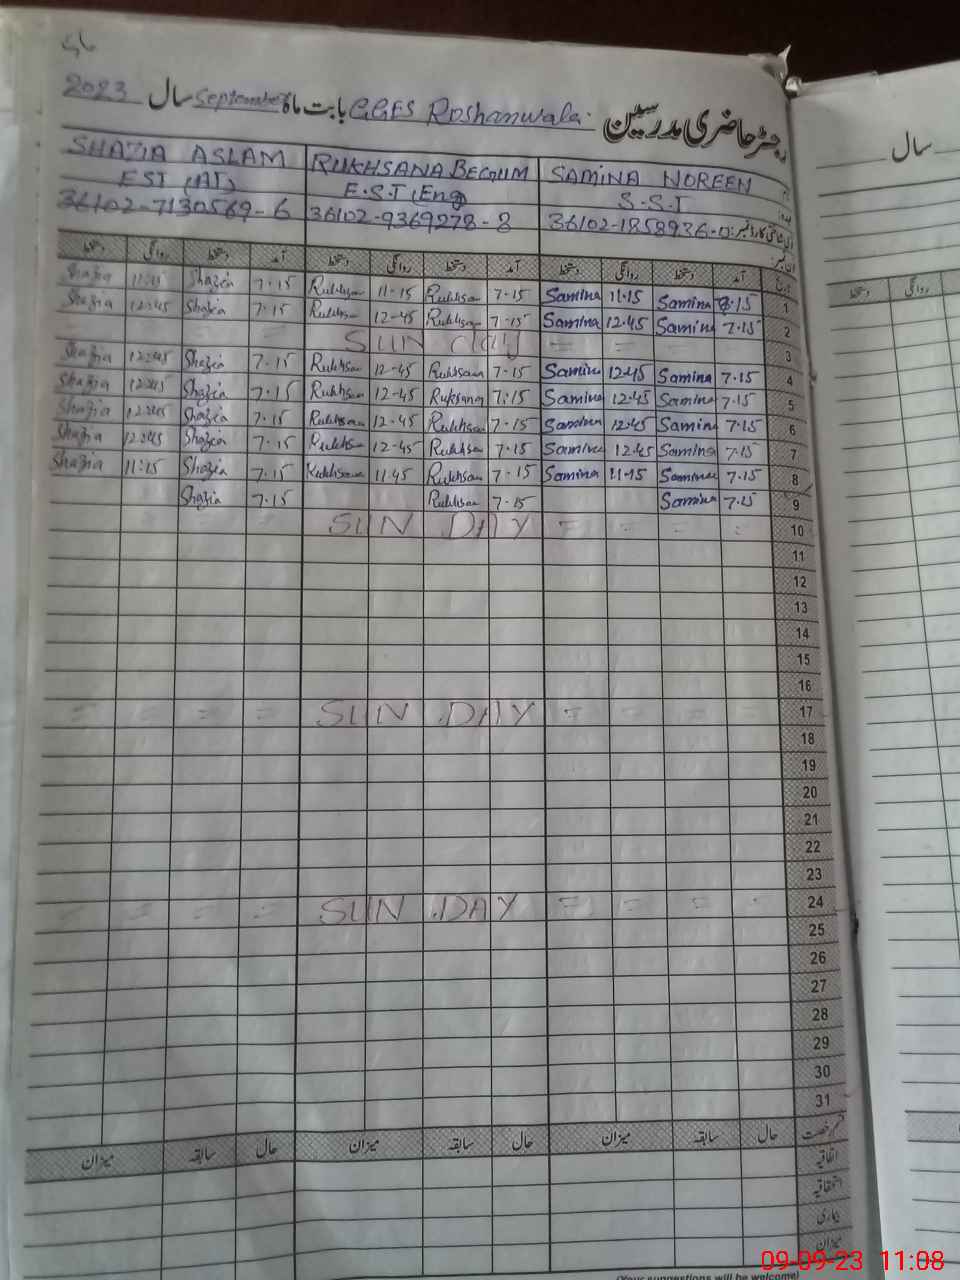 رجسٹر حاضری مدرسین GGES Roshanwala بابت ماہ September سال 2023
SHAZIA ASLAM RUKHSANA BEGUM SAMINA NOREEN
EST (AT) E.S.T (Eng) S.S.T
36102-7130569-6 36102-9369278-8 36102-1858936-0
دستخط روانگی دستخط آمد دستخط روانگی دستخط آمد دستخط روانگی دستخط آمد تاریخ
Shazia 11:15 Shazia 7.15 Rukhsan 11-15 Rukhsan 7-15 Samina 11.15 Samina 7.15 1
Shazia 12:45 Shazia 7.15 Rukhsan 12-45 Rukhsan 7-15 Samina 12.45 Samina 7.15 2
= = SUN day = = - - 3
Shazia 12:45 Shazia 7.15 Rukhsan 12-45 Rukhsana 7.15 Samina 12.45 Samina 7.15 4
Shazia 12:45 Shazia 7.15 Rukhsan 12-45 Ruksana 7.15 Samina 12.45 Samina 7.15 5
Shazia 12:45 Shazia 7.15 Rukhsan 12.45 Rukhsan 7.15 Samina 12.45 Samina 7.15 6
Shazia 12:45 Shazia 7.15 Rukhsan 12-45 Rukhsan 7.15 Samina 12.45 Samina 7.15 7
Shazia 11:15 Shazia 7.15 Rukhsana 11.45 Rukhsan 7-15 Samina 11-15 Samina 7.15 8
Shazia 7.15 Rukhsan 7-15 Samina 7.15 9
= = = = SUN DAY = = = = 10
11
12
13
14
15
16
= = = = SUN DAY = = = - 17
18
19
20
21
22
23
= = = = SUN DAY = = = - 24
25
26
27
28
29
30
31
میزان سابقہ حال میزان سابقہ حال میزان سابقہ حال قسم رخصت
اتفاقیہ
استحقاقیہ
بیماری
میزان
(Your suggestions will be welcome)
سال
دستخط روانگی
09-09-23 11:08